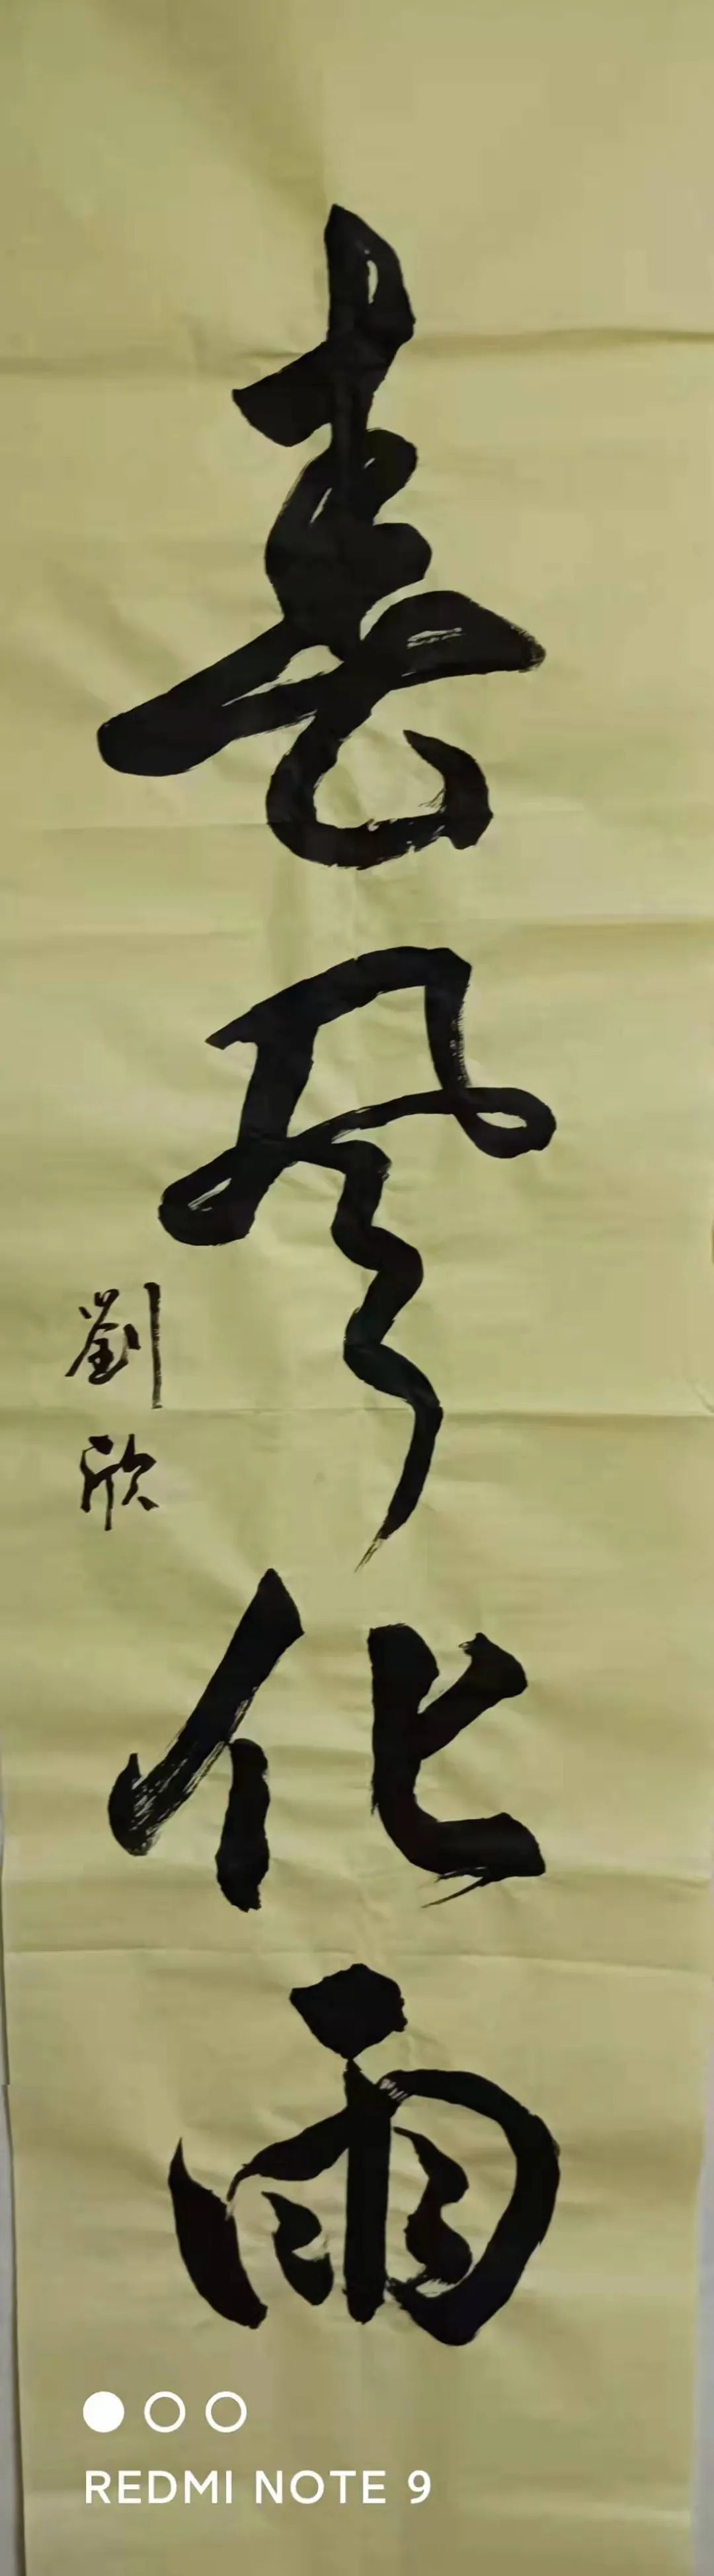 春风化雨
劉欣
REDMI NOTE 9